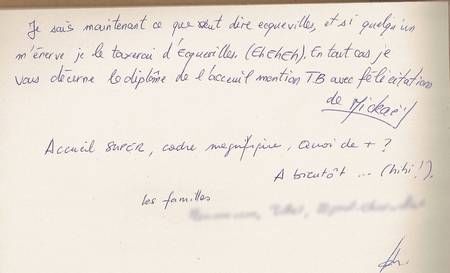 Je sais maintenant ce que veut dire ecquevilles, et si quelqu'un
m'énerve je le taxerai d'Ecquevilles. (EhEhEh). En tout cas je
vous décerne le diplôme de l'acceuil mention TB avec félicitations
de Mickaël
Accueil SUPER, cadre magnifique, Quoi de + ?
A bientôt ... (hihi!).
les familles